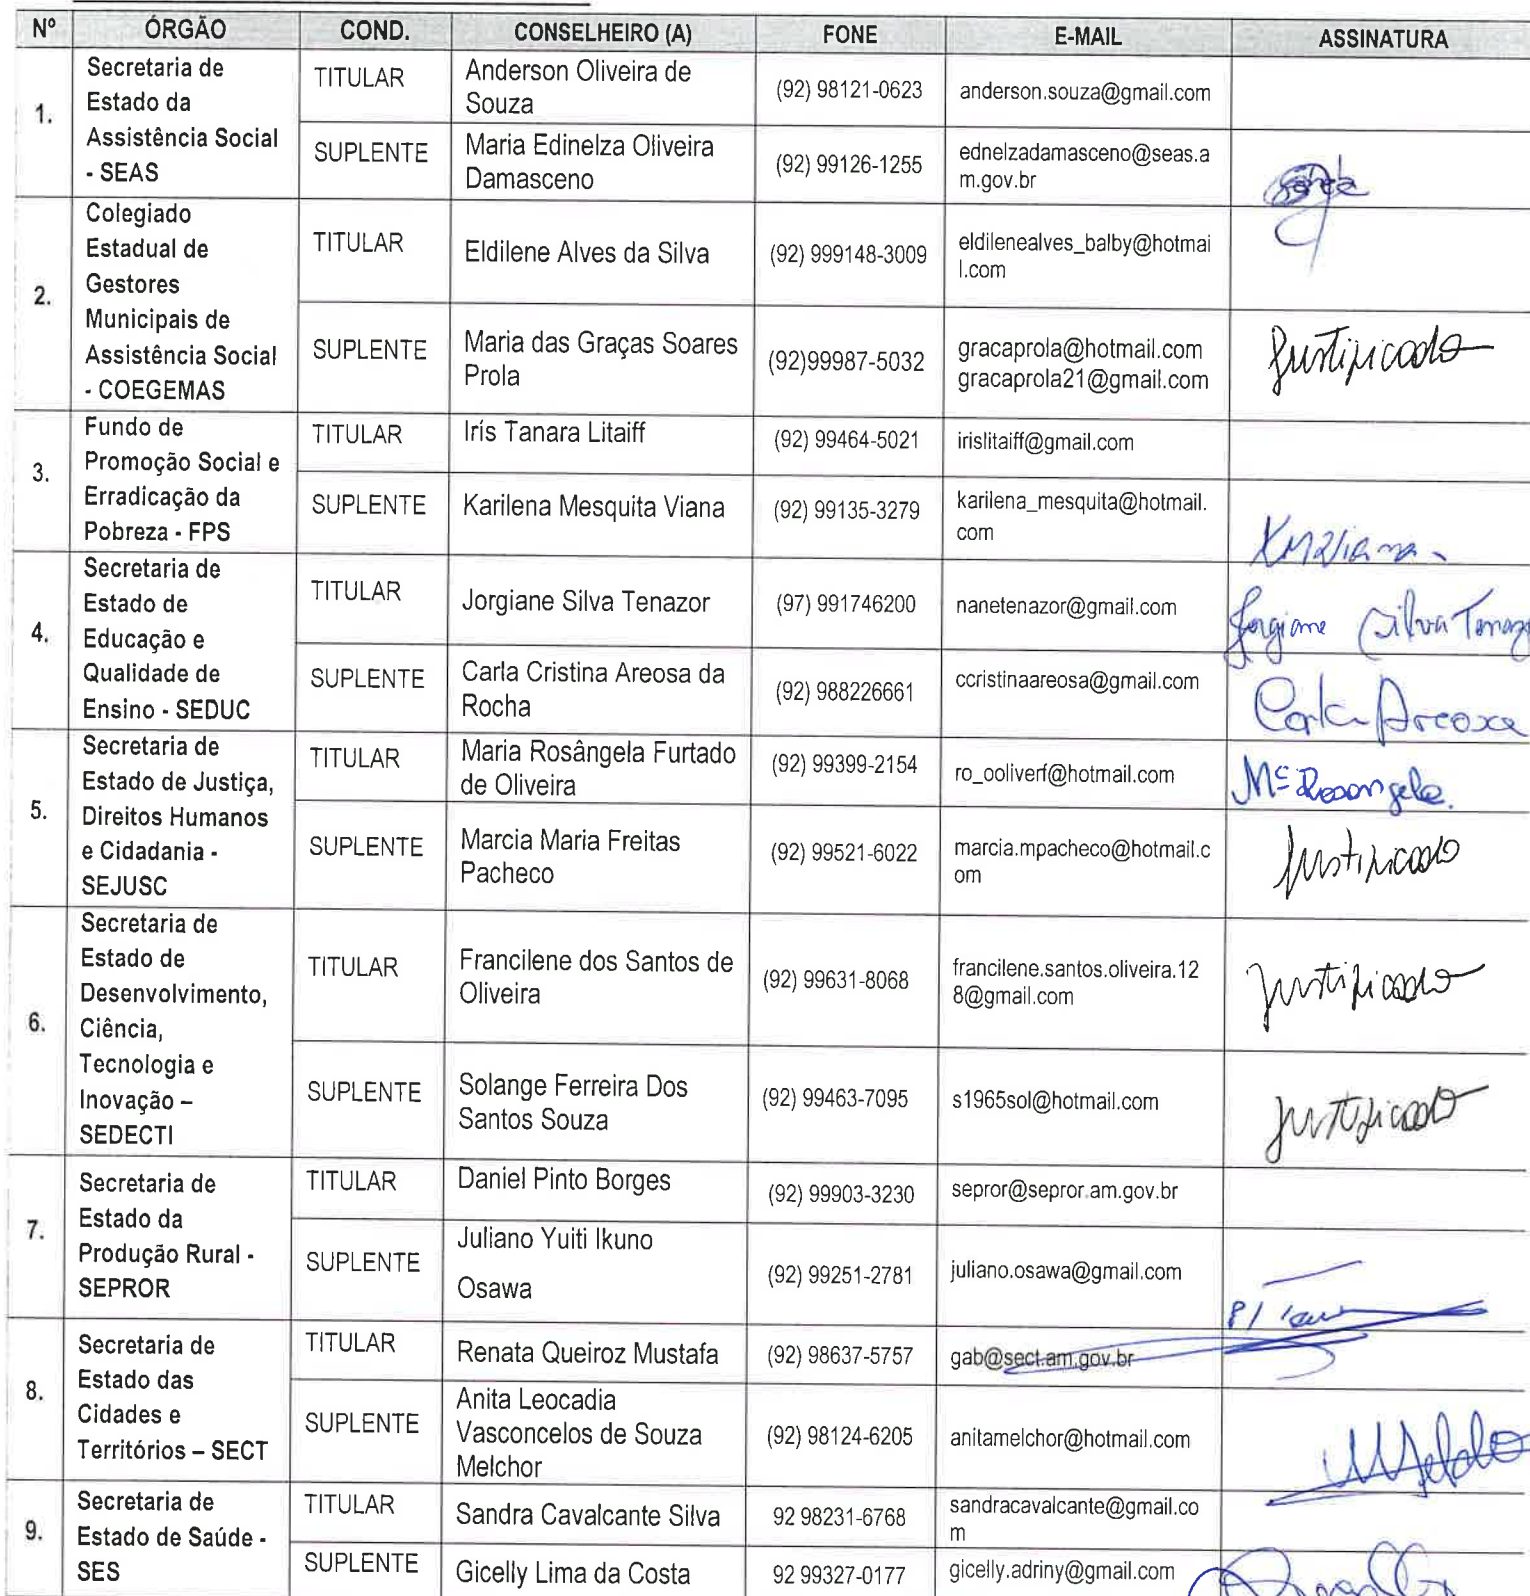 Nº ÓRGÃO COND. CONSELHEIRO (A) FONE E-MAIL ASSINATURA
1.
Secretaria de
Estado da
Assistência Social
- SEAS
TITULAR
Anderson Oliveira de
Souza
(92) 98121-0623
anderson.souza@gmail.com
SUPLENTE
Maria Edinelza Oliveira
Damasceno
(92) 99126-1255
ednelzadamasceno@seas.a
m.gov.br
2.
Colegiado
Estadual de
Gestores
Municipais de
Assistência Social
- COEGEMAS
TITULAR
Eldilene Alves da Silva
(92) 999148-3009
eldilenealves_balby@hotmai
l.com
SUPLENTE
Maria das Graças Soares
Prola
(92)99987-5032
gracaprola@hotmail.com
gracaprola21@gmail.com
Justificado
3.
Fundo de
Promoção Social e
Erradicação da
Pobreza - FPS
TITULAR
Irís Tanara Litaiff
(92) 99464-5021
irislitaiff@gmail.com
SUPLENTE
Karilena Mesquita Viana
(92) 99135-3279
karilena_mesquita@hotmail.
com
KMViana
4.
Secretaria de
Estado de
Educação e
Qualidade de
Ensino - SEDUC
TITULAR
Jorgiane Silva Tenazor
(97) 991746200
nanetenazor@gmail.com
Jorgiane Silva Tenazo
SUPLENTE
Carla Cristina Areosa da
Rocha
(92) 988226661
ccristinaareosa@gmail.com
Carla Areosa
5.
Secretaria de
Estado de Justiça,
Direitos Humanos
e Cidadania -
SEJUSC
TITULAR
Maria Rosângela Furtado
de Oliveira
(92) 99399-2154
ro_ooliverf@hotmail.com
Mª Rosangela.
SUPLENTE
Marcia Maria Freitas
Pacheco
(92) 99521-6022
marcia.mpacheco@hotmail.c
om
Justificado
6.
Secretaria de
Estado de
Desenvolvimento,
Ciência,
Tecnologia e
Inovação –
SEDECTI
TITULAR
Francilene dos Santos de
Oliveira
(92) 99631-8068
francilene.santos.oliveira.12
8@gmail.com
Justificado
SUPLENTE
Solange Ferreira Dos
Santos Souza
(92) 99463-7095
s1965sol@hotmail.com
Justificado
7.
Secretaria de
Estado da
Produção Rural -
SEPROR
TITULAR
Daniel Pinto Borges
(92) 99903-3230
sepror@sepror.am.gov.br
SUPLENTE
Juliano Yuiti Ikuno
Osawa
(92) 99251-2781
juliano.osawa@gmail.com
P/
8.
Secretaria de
Estado das
Cidades e
Territórios – SECT
TITULAR
Renata Queiroz Mustafa
(92) 98637-5757
gab@sect.am.gov.br
SUPLENTE
Anita Leocadia
Vasconcelos de Souza
Melchor
(92) 98124-6205
anitamelchor@hotmail.com
9.
Secretaria de
Estado de Saúde -
SES
TITULAR
Sandra Cavalcante Silva
92 98231-6768
sandracavalcante@gmail.co
m
SUPLENTE
Gicelly Lima da Costa
92 99327-0177
gicelly.adriny@gmail.com